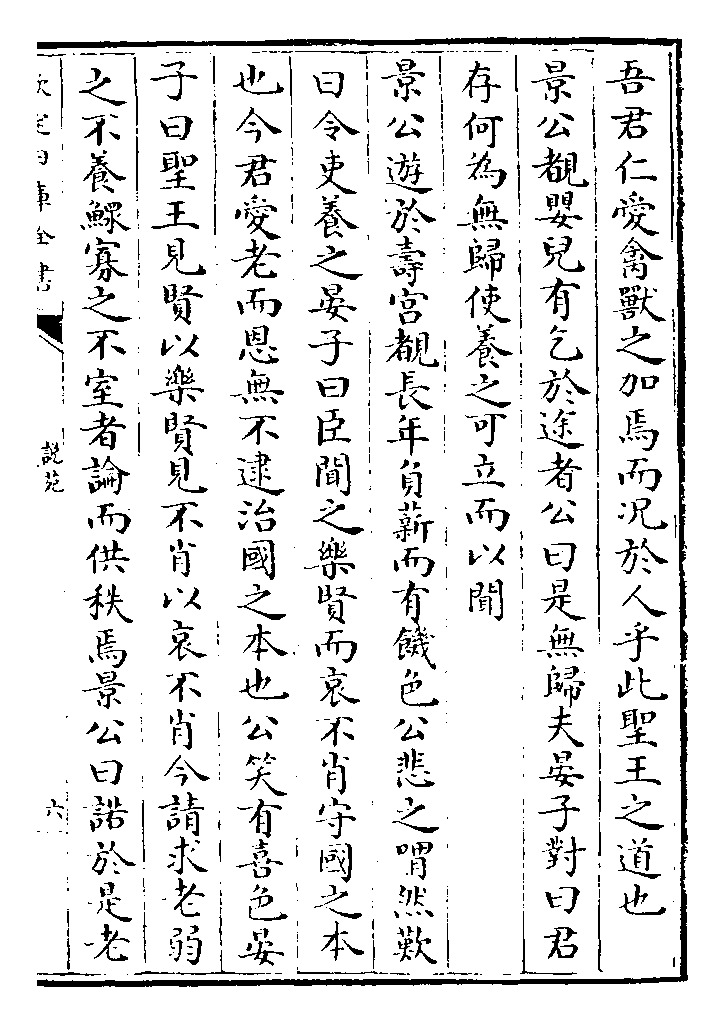 吾君仁愛禽獸之加焉而况於人乎此聖王之道也
景公覩嬰兒有乞於途者公曰是無歸夫晏子對曰君
存何為無歸使養之可立而以聞
景公遊於壽宮覩長年負薪而有饑色公悲之喟然歎
曰令吏養之晏子曰臣聞之樂賢而哀不肖守國之本
也今君愛老而恩無不逮治國之本也公笑有喜色晏
子曰聖王見賢以樂賢見不肖以哀不肖今請求老弱
之不養鰥寡之不室者論而供秩焉景公曰諾於是老
欽定四庫全書
說苑
六